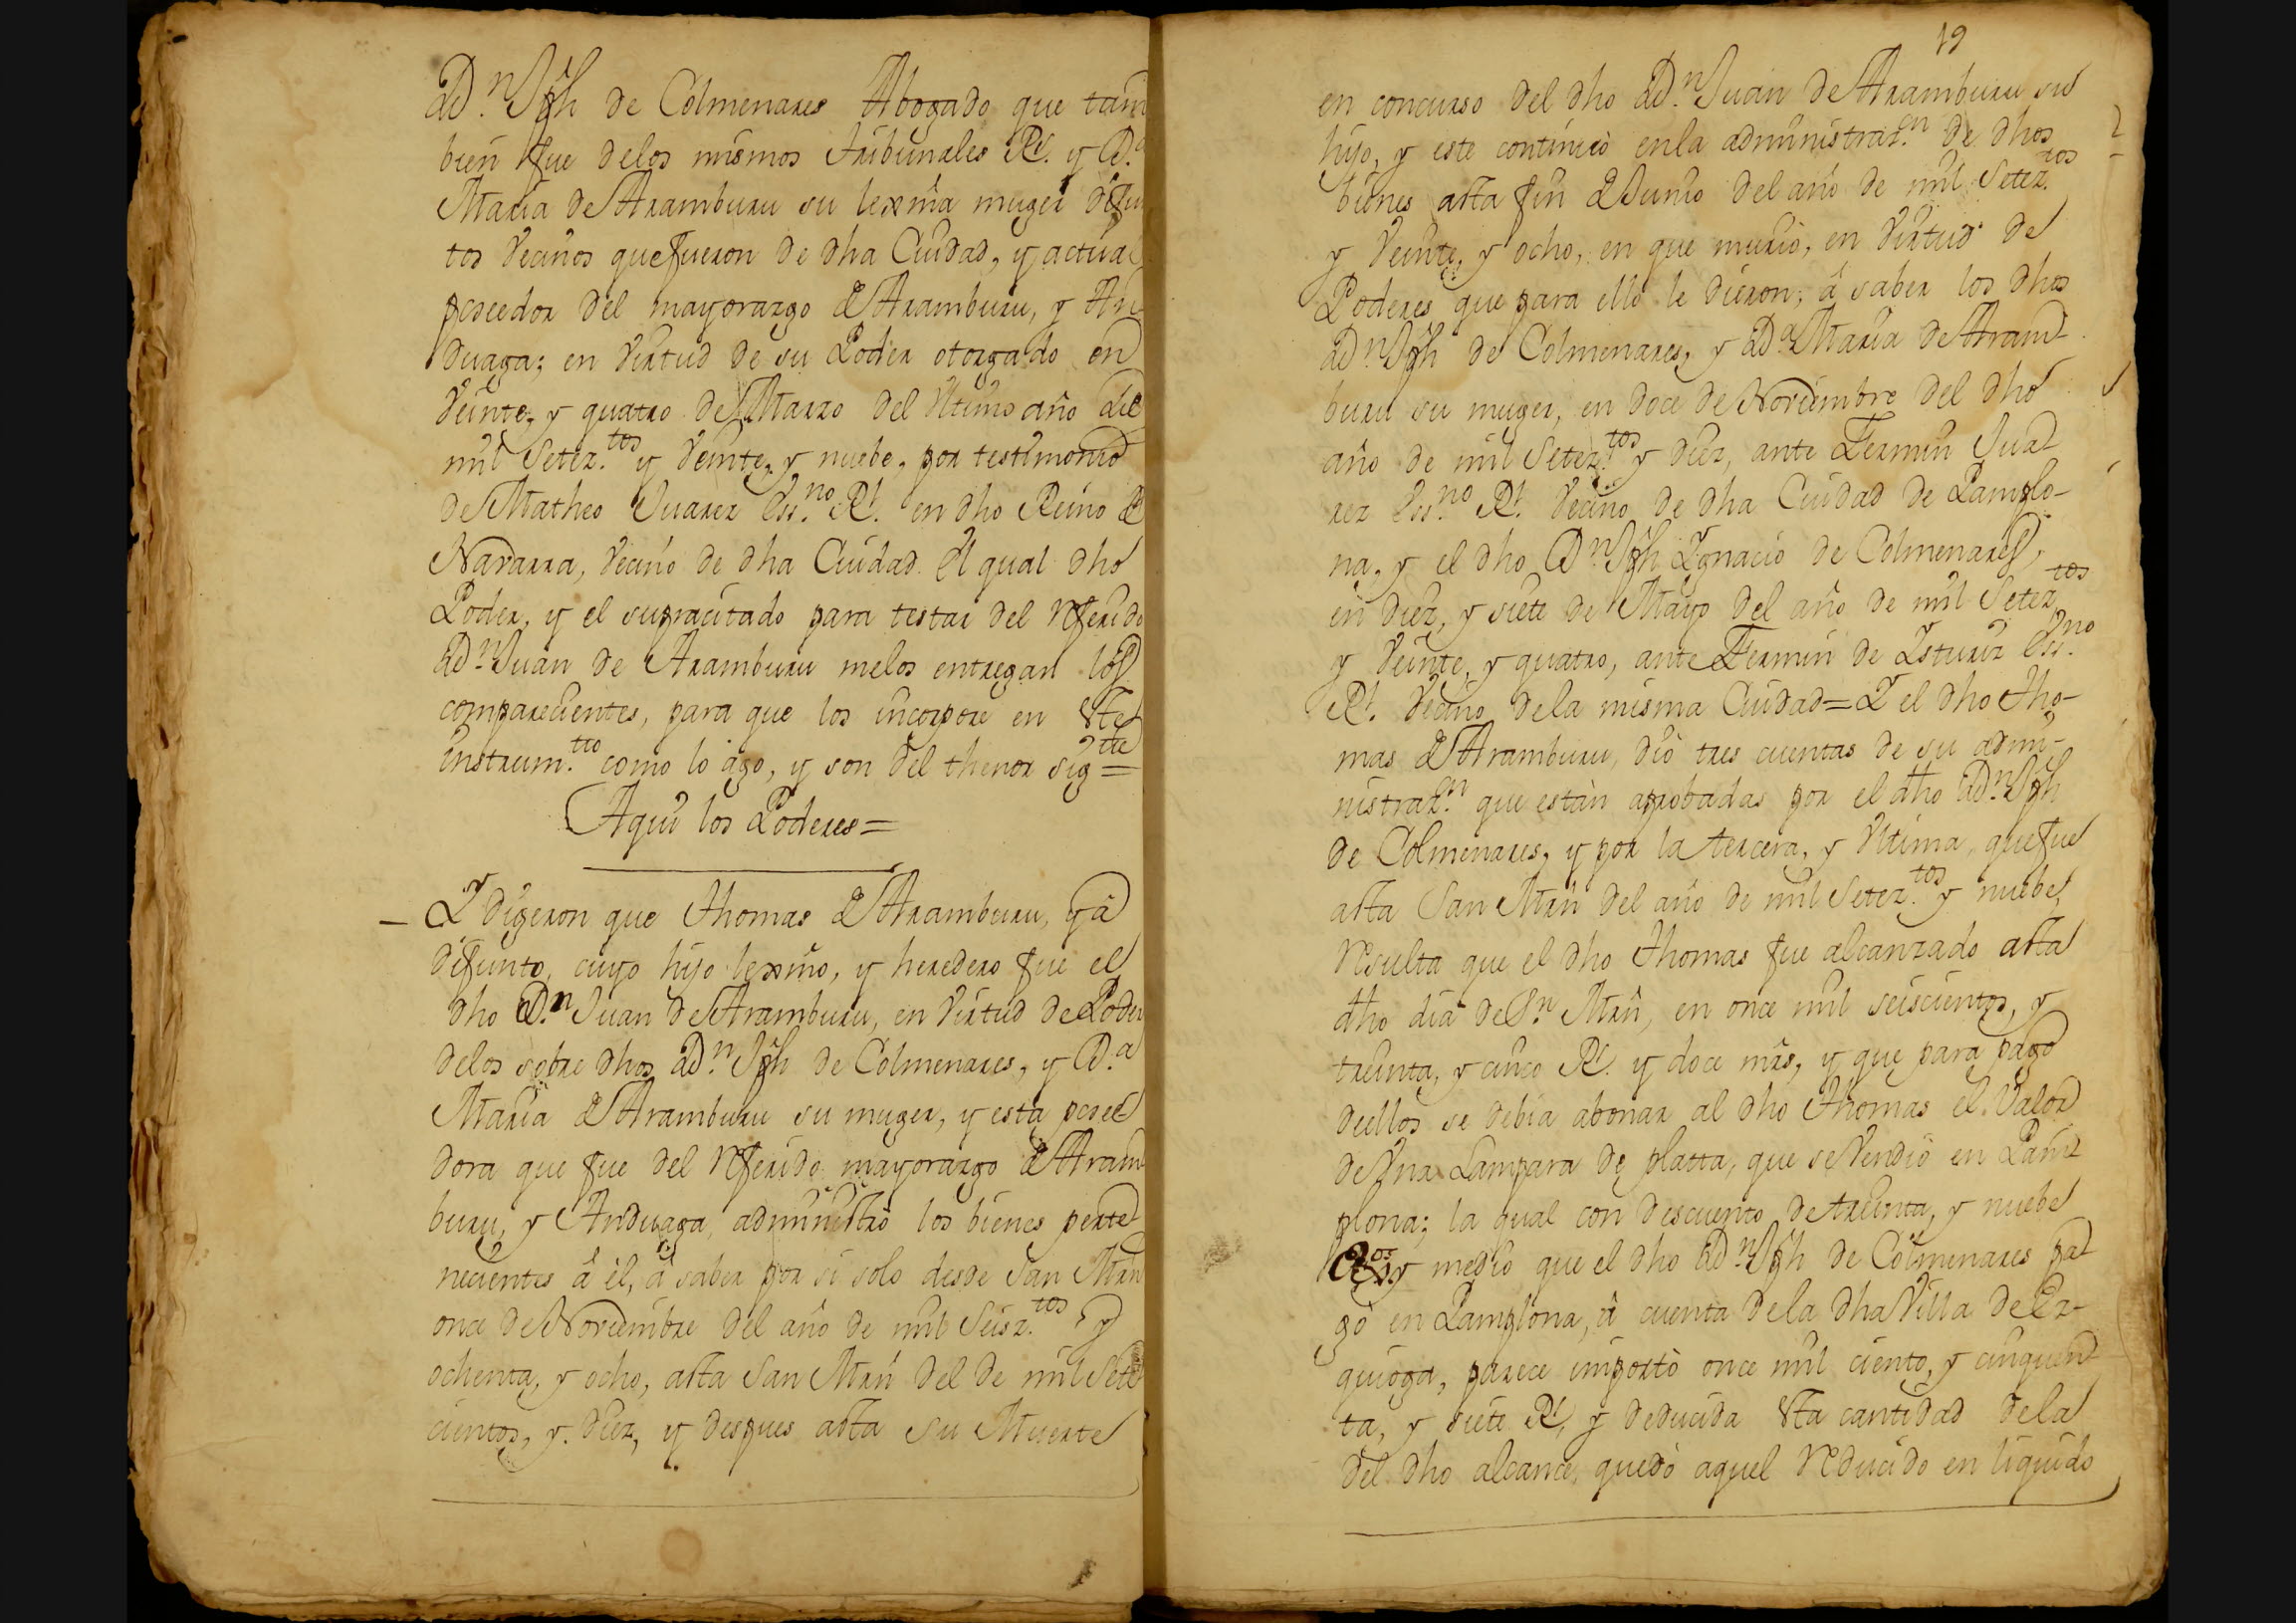 D.n Jph de Colmenares Abogado que tam
bien fue delos mismos tribunales Rs. y D.a
Maria de Aramburu su lexma muger difun
tos vecinos que fueron de dha Ciudad, y actual
poseedor del mayorazgo de Aramburu, y An
duaga; en virtud de su Poder otorgado en
veinte, y quatro de Marzo del ultimo año de
mil setez.tos y veinte, y nuebe, por testimonio
de Matheo Juarez Ess.no Rl. en dho Reino de
Navarra, vecino de dha Ciudad. El qual dho
Poder, y el supracitado para testar del referido
D.n Juan de Aramburu melos entregan los
comparecientes, para que los incorpore en este
instrum.tto como lo ago, y son del thenor sig.tte =
Aqui los Poderes=
— Y digeron que Thomas de Aramburu, yà
difunto, cuyo hijo lexmo, y heredero fue el
dho D.n Juan de Aramburu, en virtud de Poder
delos sobre dhos D.n Jph de Colmenares, y D.a
Maria de Aramburu su muger, y esta posee
dora que fue del referido mayorazgo de Aram
buru, y Anduaga, administrò los bienes perte
necientes â èl, â saber por si solo desde San Mrn
once de Noviembre del año de mil Seisz.tos y
ochenta, y ocho, asta San Mrn del de mil sete
cientos, y diez, y despues asta su Muerte
19
en concurso del dho D.n Juan de Aramburu su
hijo, y este continuò enla administraz.on de dhos
bienes asta fin de Junio del año de mil Setez.tos
y veinte, y ocho, en que muriò, en virtud de
Poderes que para ello le dieron; â saber los dhos
D.n Jph de Colmenares, y D.a Maria de Aram
buru su muger, en doce de Noviembre del dho
año de mil Setez.tos y diez, ante Fermin Jua
rez Ess.no Rl. vecino de dha Ciudad de Pamplo-
na, y el dho D.n Jph Ygnacio de Colmenares,
en diez, y siete de Mayo del año de mil Setez.tos
y veinte, y quatro, ante Fermin de Ysturiz Ess.no
Rl. vecino dela misma Ciudad= Y el dho Tho-
mas de Aramburu, diò tres cuentas de su admi-
nistraz.on que estàn aprobadas por el dho D.n Jph
de Colmenares, y por la tercera, y ultima, que fue
asta San Mrn del año de mil Setez.tos y nuebe,
resulta que el dho Thomas fue alcanzado asta
dho dia de Sn Mrn, en once mil seiscientos, y
treinta, y cinco Rs. y doce mrs, y que para pago
deellos se debia abonar al dho Thomas el Valor
de vna Lampara de platta, que se vendiò en Pam
plona; la qual con descuento de treinta, y nuebe
y medio que el dho D.n Jph de Colmenares pa
gò en Pamplona, â cuenta dela dha Villa de Ez-
quioga, parece importò once mil ciento, y cinquen
ta, y siete Rs, y deducida esta cantidad dela
del dho alcance, quedò aquel reducido en liquido